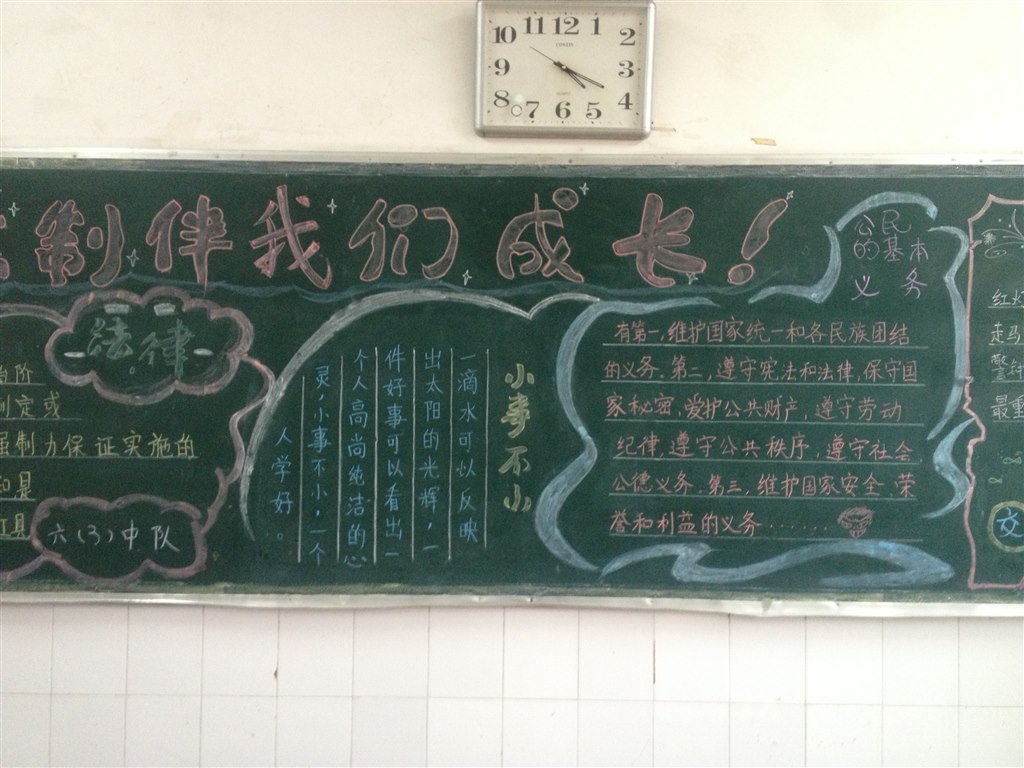 11 12 1
10 2
9 3
8 4
7 6 5
制伴我们成长！
法律
治阶
制定或
强制力保证实施的
和是
工具
六（3）中队
小事不小
一滴水可以反映
出太阳的光辉，一
件好事可以看出一
个人高尚纯洁的心
灵，小事不小，一个
人学好。
公民
的基本
义务
有第一，维护国家统一和各民族团结
的义务。第二，遵守宪法和法律，保守国
家秘密，爱护公共财产，遵守劳动
纪律，遵守公共秩序，遵守社会
公德义务。第三，维护国家安全、荣
誉和利益的义务......
红灯
走马
警钟
最重
交